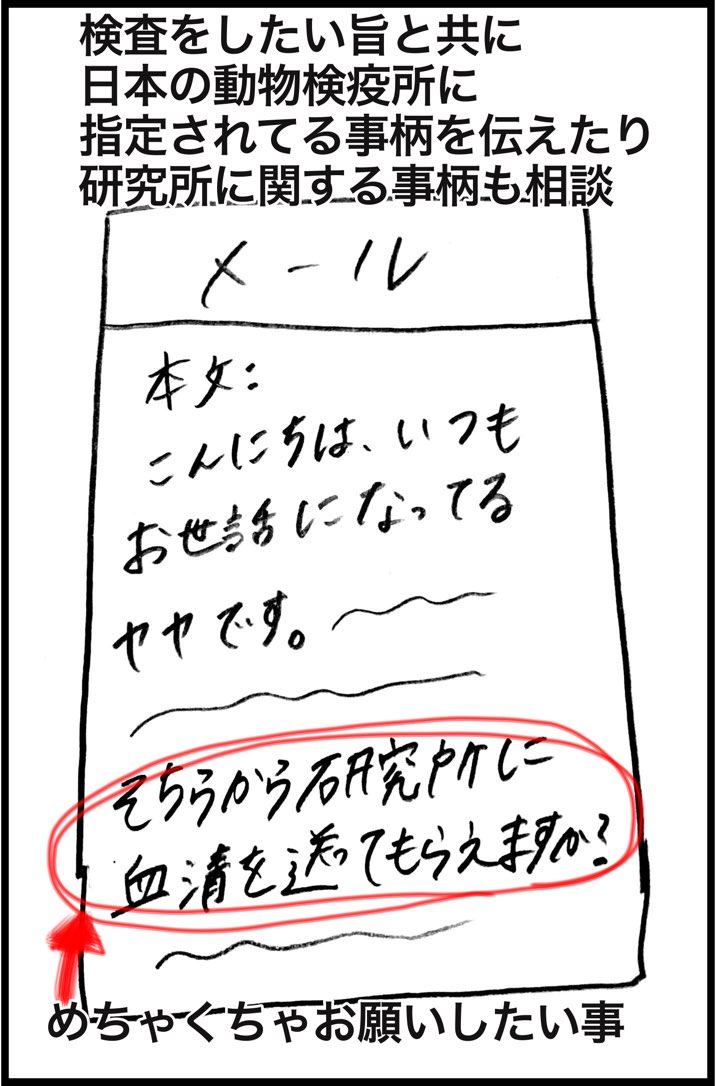 検査をしたい旨と共に
日本の動物検疫所に
指定されてる事柄を伝えたり
研究所に関する事柄も相談
メール
本文:
こんにちは、いつも
お世話になってる
ヤヤです。
そちらから研究所に
血清を送ってもらえますか?
めちゃくちゃお願いしたい事